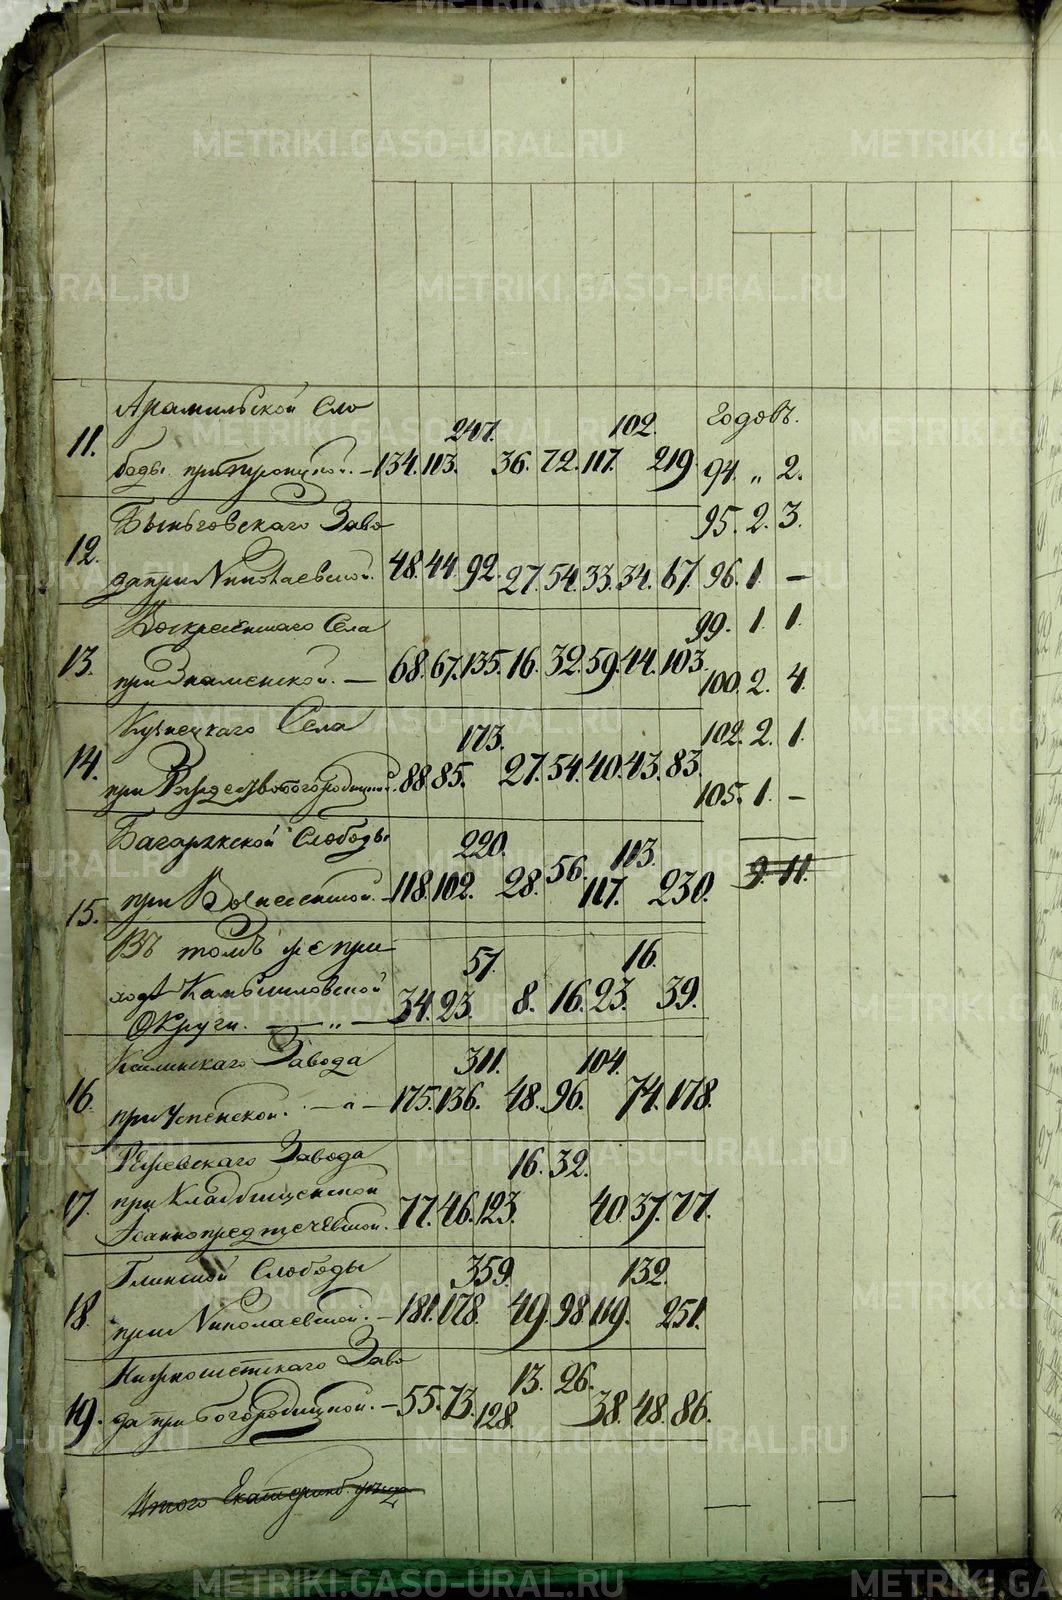 METRIKI.GASO-URAL.RU
Арамильской Сло
247. 102. Годовъ.
11. боды при Троицкой. — 134. 113. 36. 72. 117. 219. 94. „ 2.
Быньговскаго Заво 95. 2. 3.
12. да при Николаевской. 48. 44. 92. 27. 54. 33. 34. 67. 96. 1. —
Воскресенскаго Села 99. 1. 1.
13. при Знаменской. — 68. 67. 135. 16. 32. 59. 44. 103. 100. 2. 4.
Кузнецкаго Села 173. 102. 2. 1.
14. при Рождествобогородицкой. 88. 85. 27. 54. 40. 43. 83. 105. 1. —
Багарякской Слободы 220. 113.
15. при Вознесенской. — 118. 102. 28. 56. 117. 230. 9. 11.
Въ томъ же при 57. 16.
ходѣ Камышловской 34. 23. 8. 16. 23. 39.
Округи. — „ —
Каслинскаго Завода 311. 104.
16. при Успенской. — „ — 175. 136. 48. 96. 74. 178.
Режевскаго Завода 16. 32.
17. при Кладбищенской
Іоаннопредтечевской. — 77. 46. 123. 40. 37. 77.
Глинской Слободы 359. 132.
18. при Николаевской. — 181. 178. 49. 98. 119. 251.
Нижнеисетскаго Заво 13. 26.
19. да при Богородицкой. — 55. 73. 128. 38. 48. 86.
Итого Екатеринб.